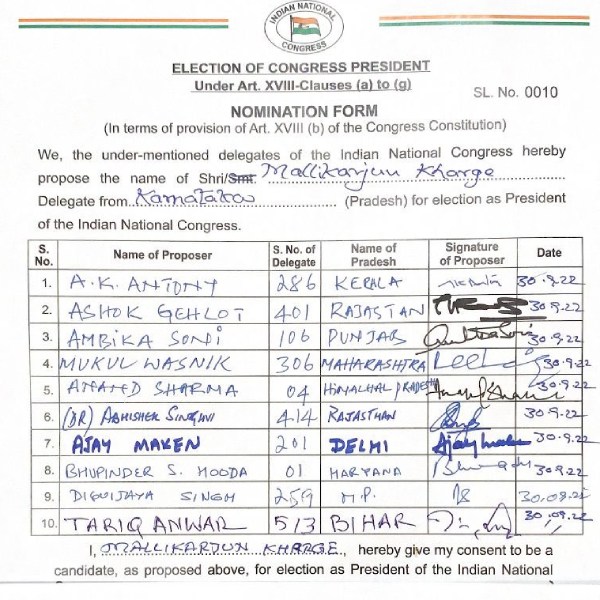 INDIAN NATIONAL
CONGRESS
ELECTION OF CONGRESS PRESIDENT
Under Art. XVIII-Clauses (a) to (g)
SL. No. 0010
NOMINATION FORM
(In terms of provision of Art. XVIII (b) of the Congress Constitution)
We, the under-mentioned delegates of the Indian National Congress hereby
propose the name of Shri/Smt. Mallikarjun Kharge
Delegate from Karnataka (Pradesh) for election as President
of the Indian National Congress.
S. No. Name of Proposer S. No. of Delegate Name of Pradesh Signature of Proposer Date
1. A.K. ANTONY 286 KERALA 30.9.22
2. ASHOK GEHLOT 401 RAJASTAN 30.9.22
3. AMBIKA SONI 106 PUNJAB Ambika Soni 30.9.22
4. MUKUL WASNIK 306 MAHARASHTRA 30.9.22
5. ANAND SHARMA 04 HIMACHAL PRADESH Anand Sharma 30.9.22
6. (DR) ABHISHEK SINGHVI 414 RAJASTHAN 30.9.22
7. AJAY MAKEN 201 DELHI Ajay Maken 30.9.22
8. BHUPINDER S. HOODA 01 HARYANA 30.9.22
9. DIGVIJAYA SINGH 259 M.P. 30.09.22
10. TARIQ ANWAR 513 BIHAR 30.09.22
I, MALLIKARJUN KHARGE, hereby give my consent to be a
candidate, as proposed above, for election as President of the Indian National